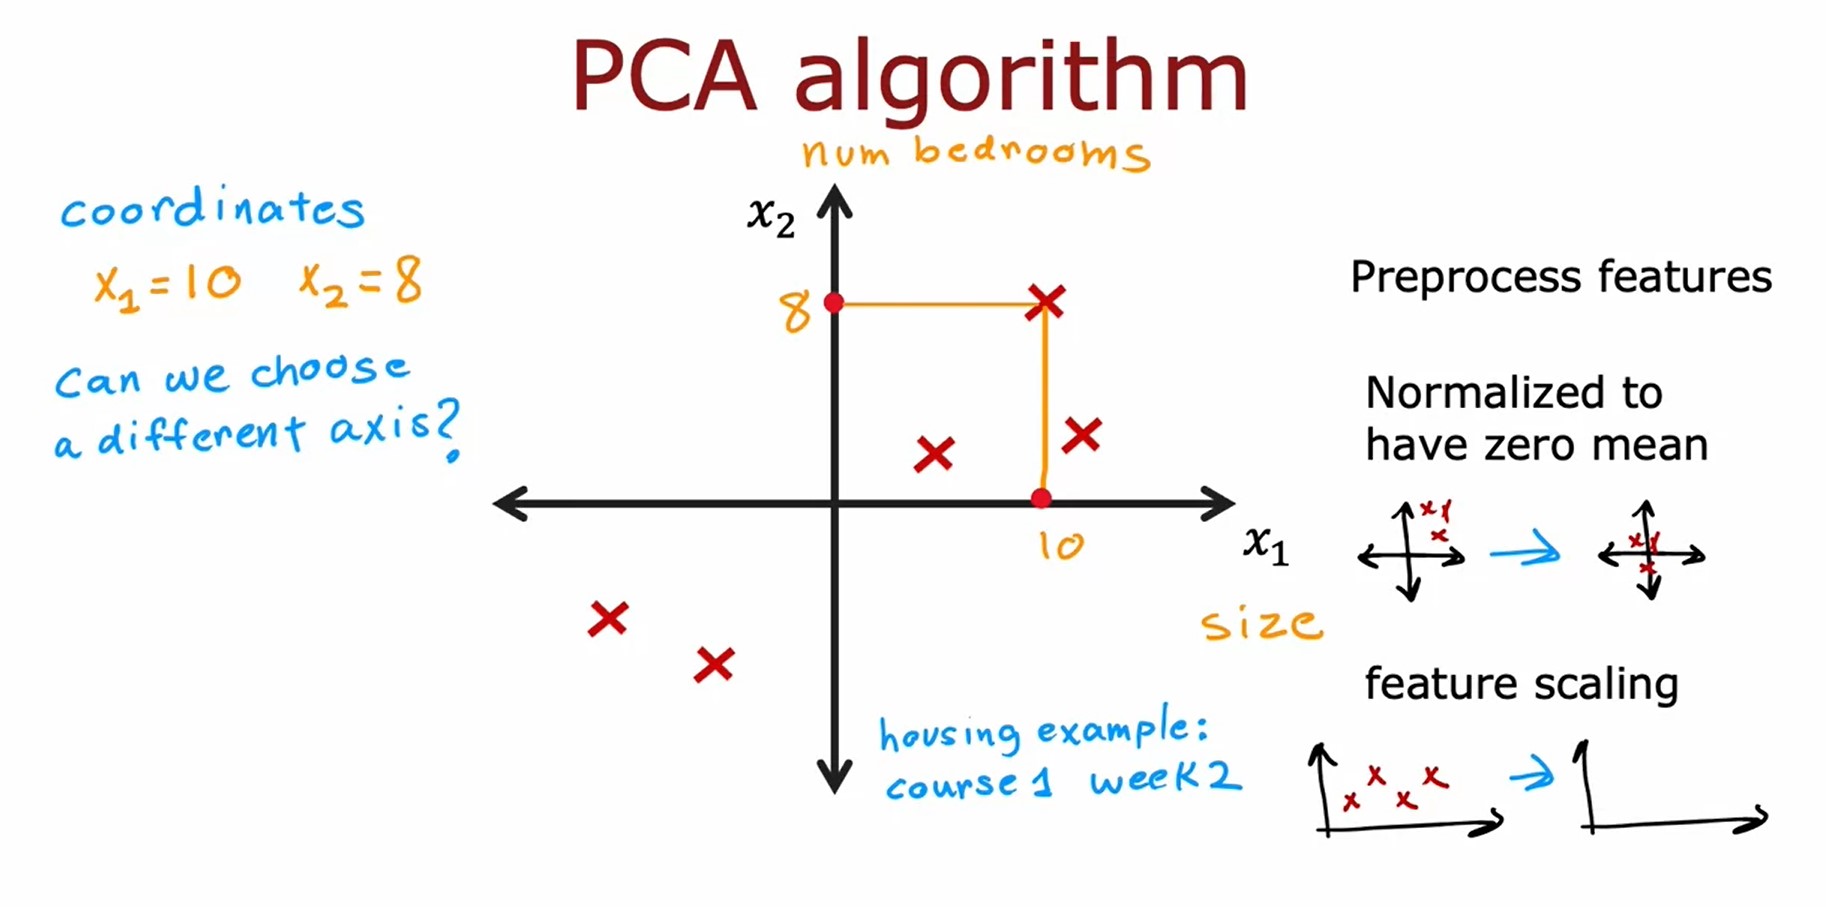 PCA algorithm
num bedrooms
coordinates
x₁ = 10 x₂ = 8
can we choose
a different axis?
x₂
8
10
x₁
size
housing example:
course 1 week 2
Preprocess features
Normalized to
have zero mean
feature scaling